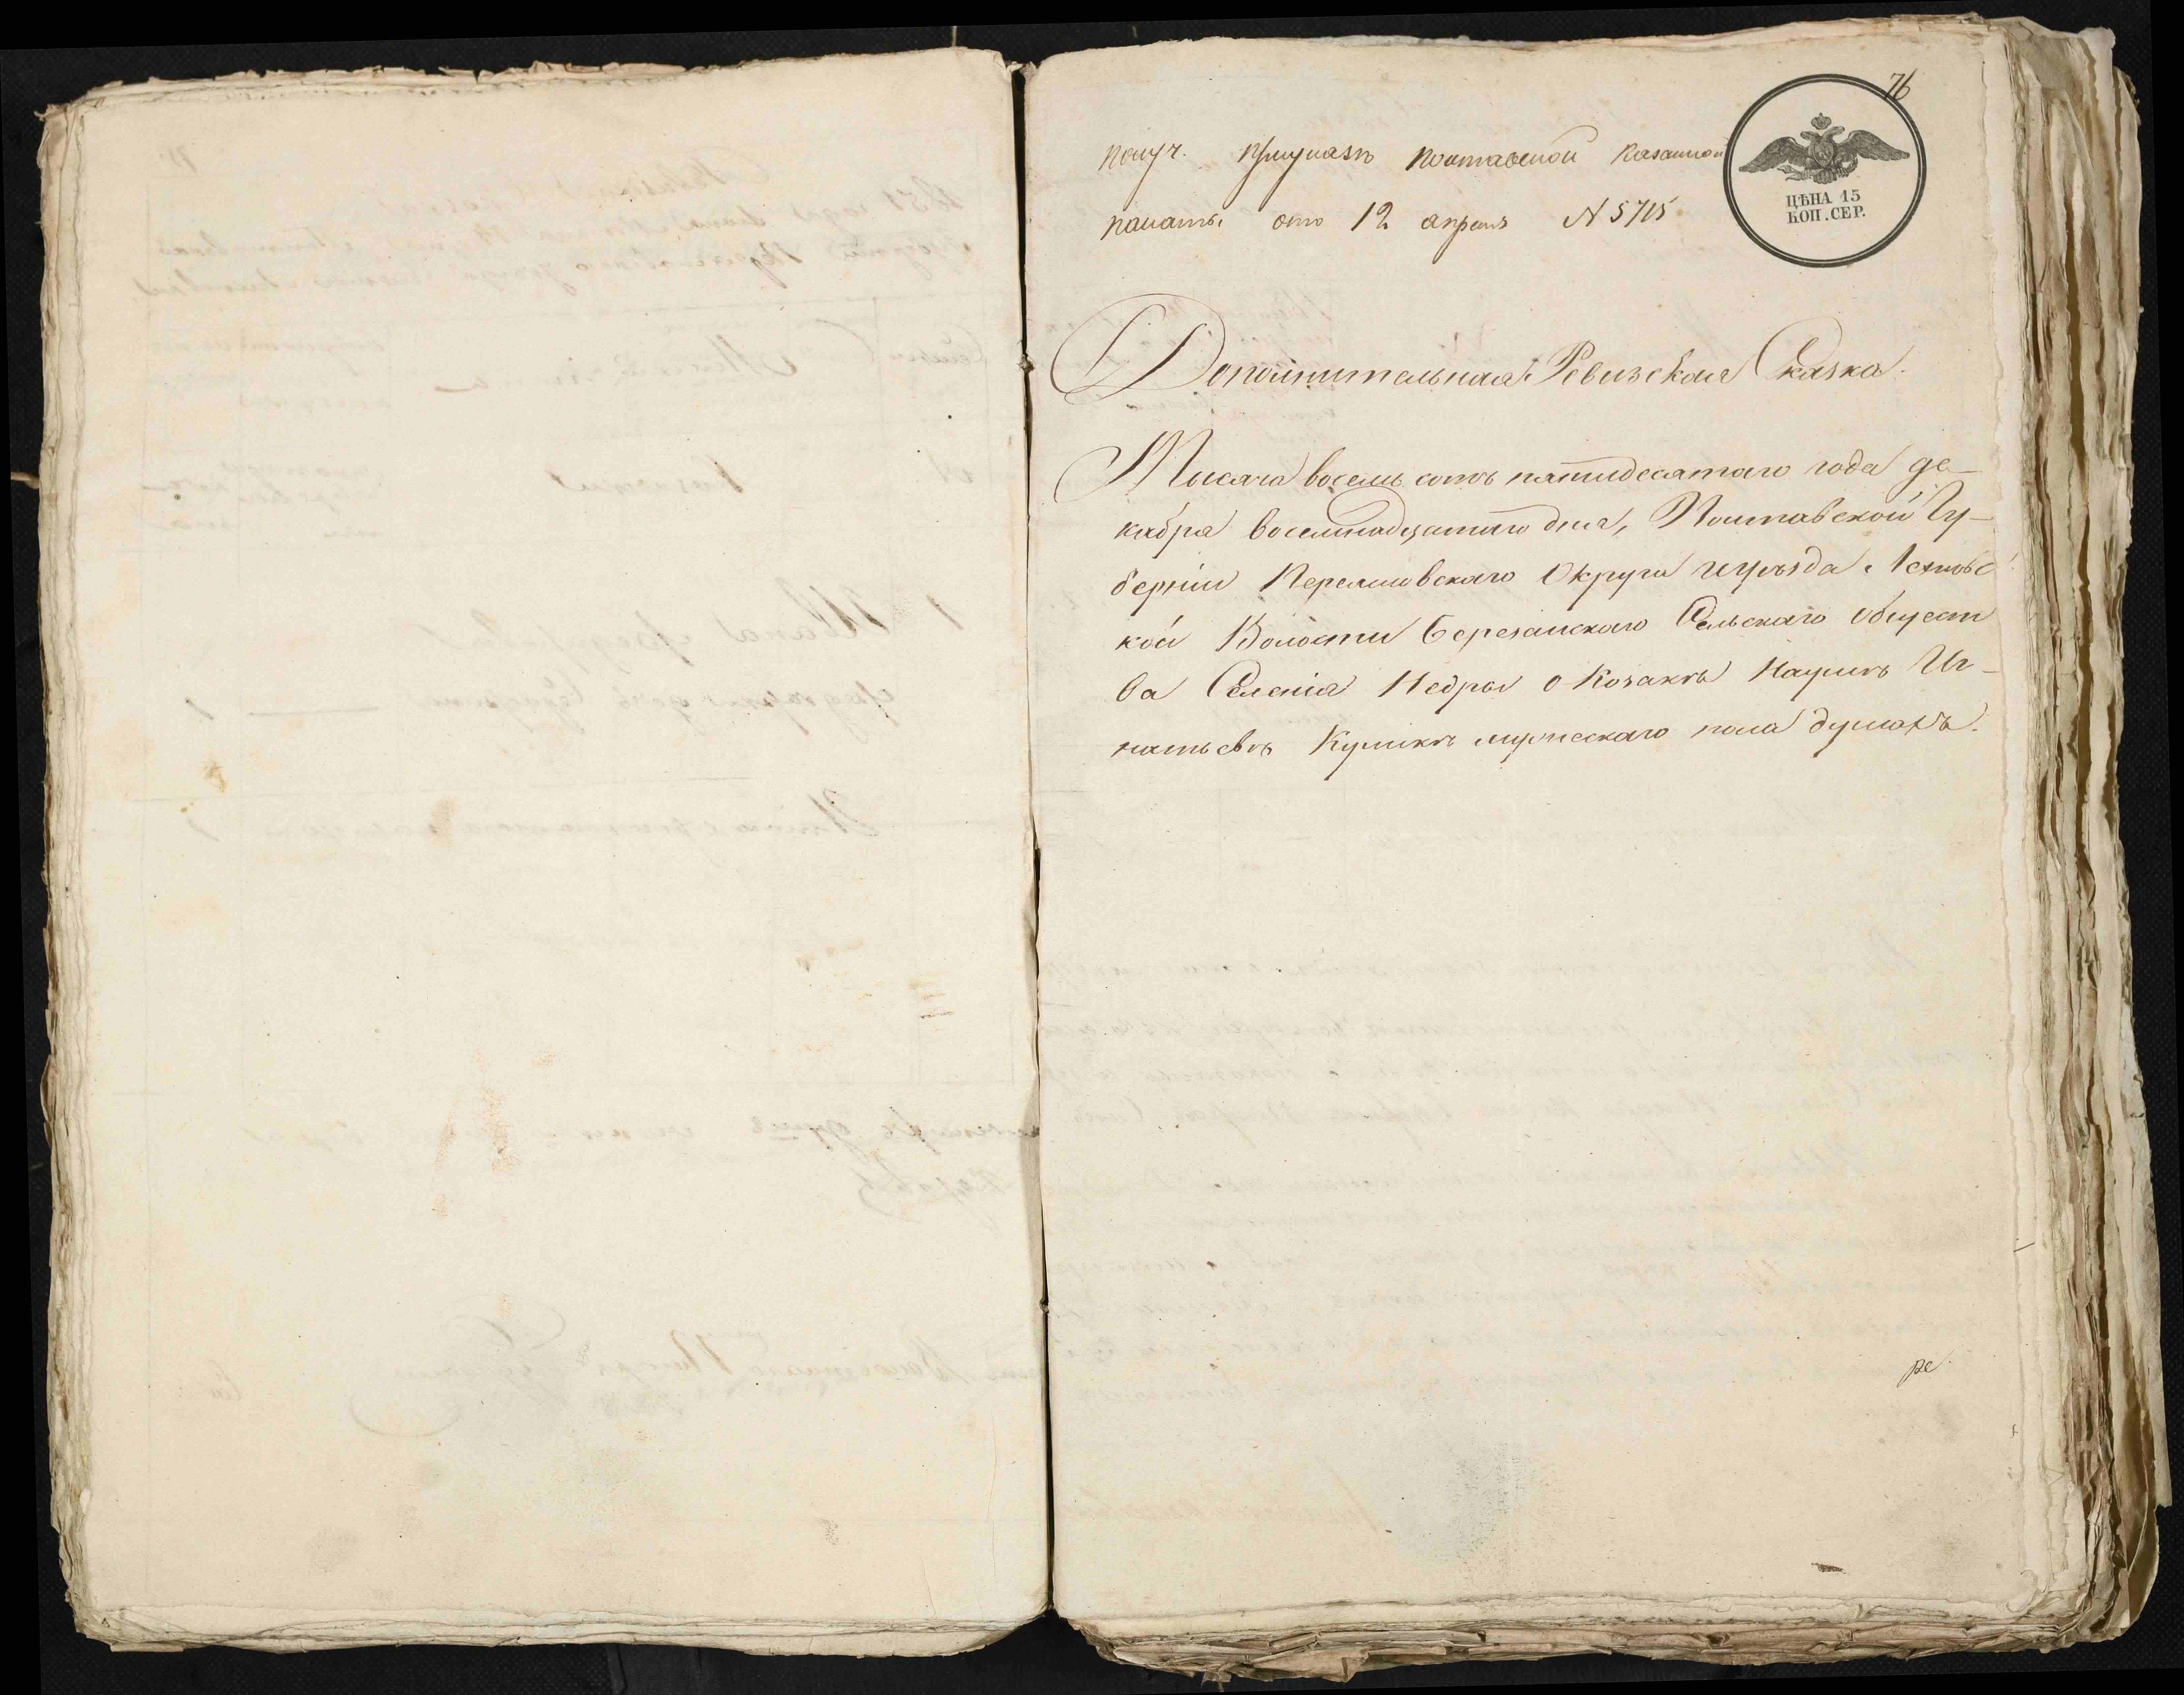 76
получ. приуказъ Полтавской Казенной
палаты отъ 12 апреля N 5715
ЦѢНА 15
КОП. СЕР.
Дополнительная Ревизская Сказка.
Тысяча восемь сотъ пятидесятаго года де-
кабря восемнадцатаго дня, Полтавской Гу-
берніи Переяславскаго Округа и уѣзда
кой Волости Березанскаго Сельскаго Общест
ва Селенія Недры о Козакѣ Наумѣ Иг-
натьевѣ Куликѣ мужескаго пола душахъ.
ре